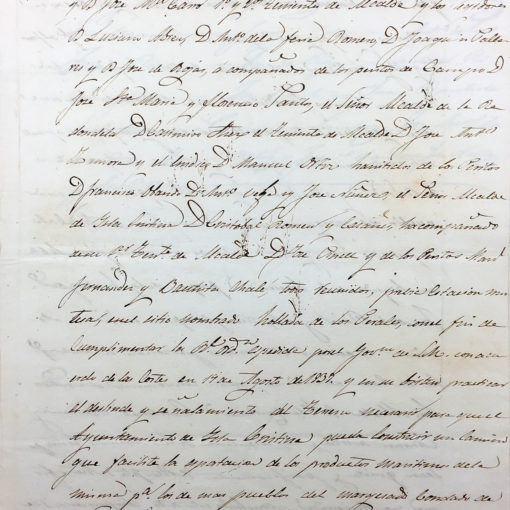 y D. José Mª Caro 1º y 2º teniente de Alcalde y los rejidores
D. Luciano Abrey, D. Antº de la Feria Romero, D. Joaquin
y D. José de Rojas, acompañados de los peritos de Campo D.
José Stª Maria y Florencio Santos, el Señor Alcalde de la Re
dondela D. Casimiro el teniente de Alcalde D. José Antº
Zamora y el Sindico D. Manuel Ortiz, hasistidos de los Peritos
D. Francisco y José Nuñez, el Señor Alcalde
de Isla Cristina D. Cristobal Romeu y hacompañado
de su 1er Tente de Alcalde D. José y de los Peritos Manl
Fernandez y Bautista todos reunidos, previe citacion mu
tua, en el sitio nombrado Hollada de los Perales, con el fin de
cumplimentar la Rl Ordn espedida por el Govno de S.M. con acu
erdo de las Cortes en de Agosto de 1837. y en su practicar
el deslinde y señalamiento del terreno necesario para que el
Ayuntamiento de Isla Cristina pueda construir un camino
que facilite la esportacion de los productos maritimos de la
misma pª los demas pueblos del marquesado Condado de